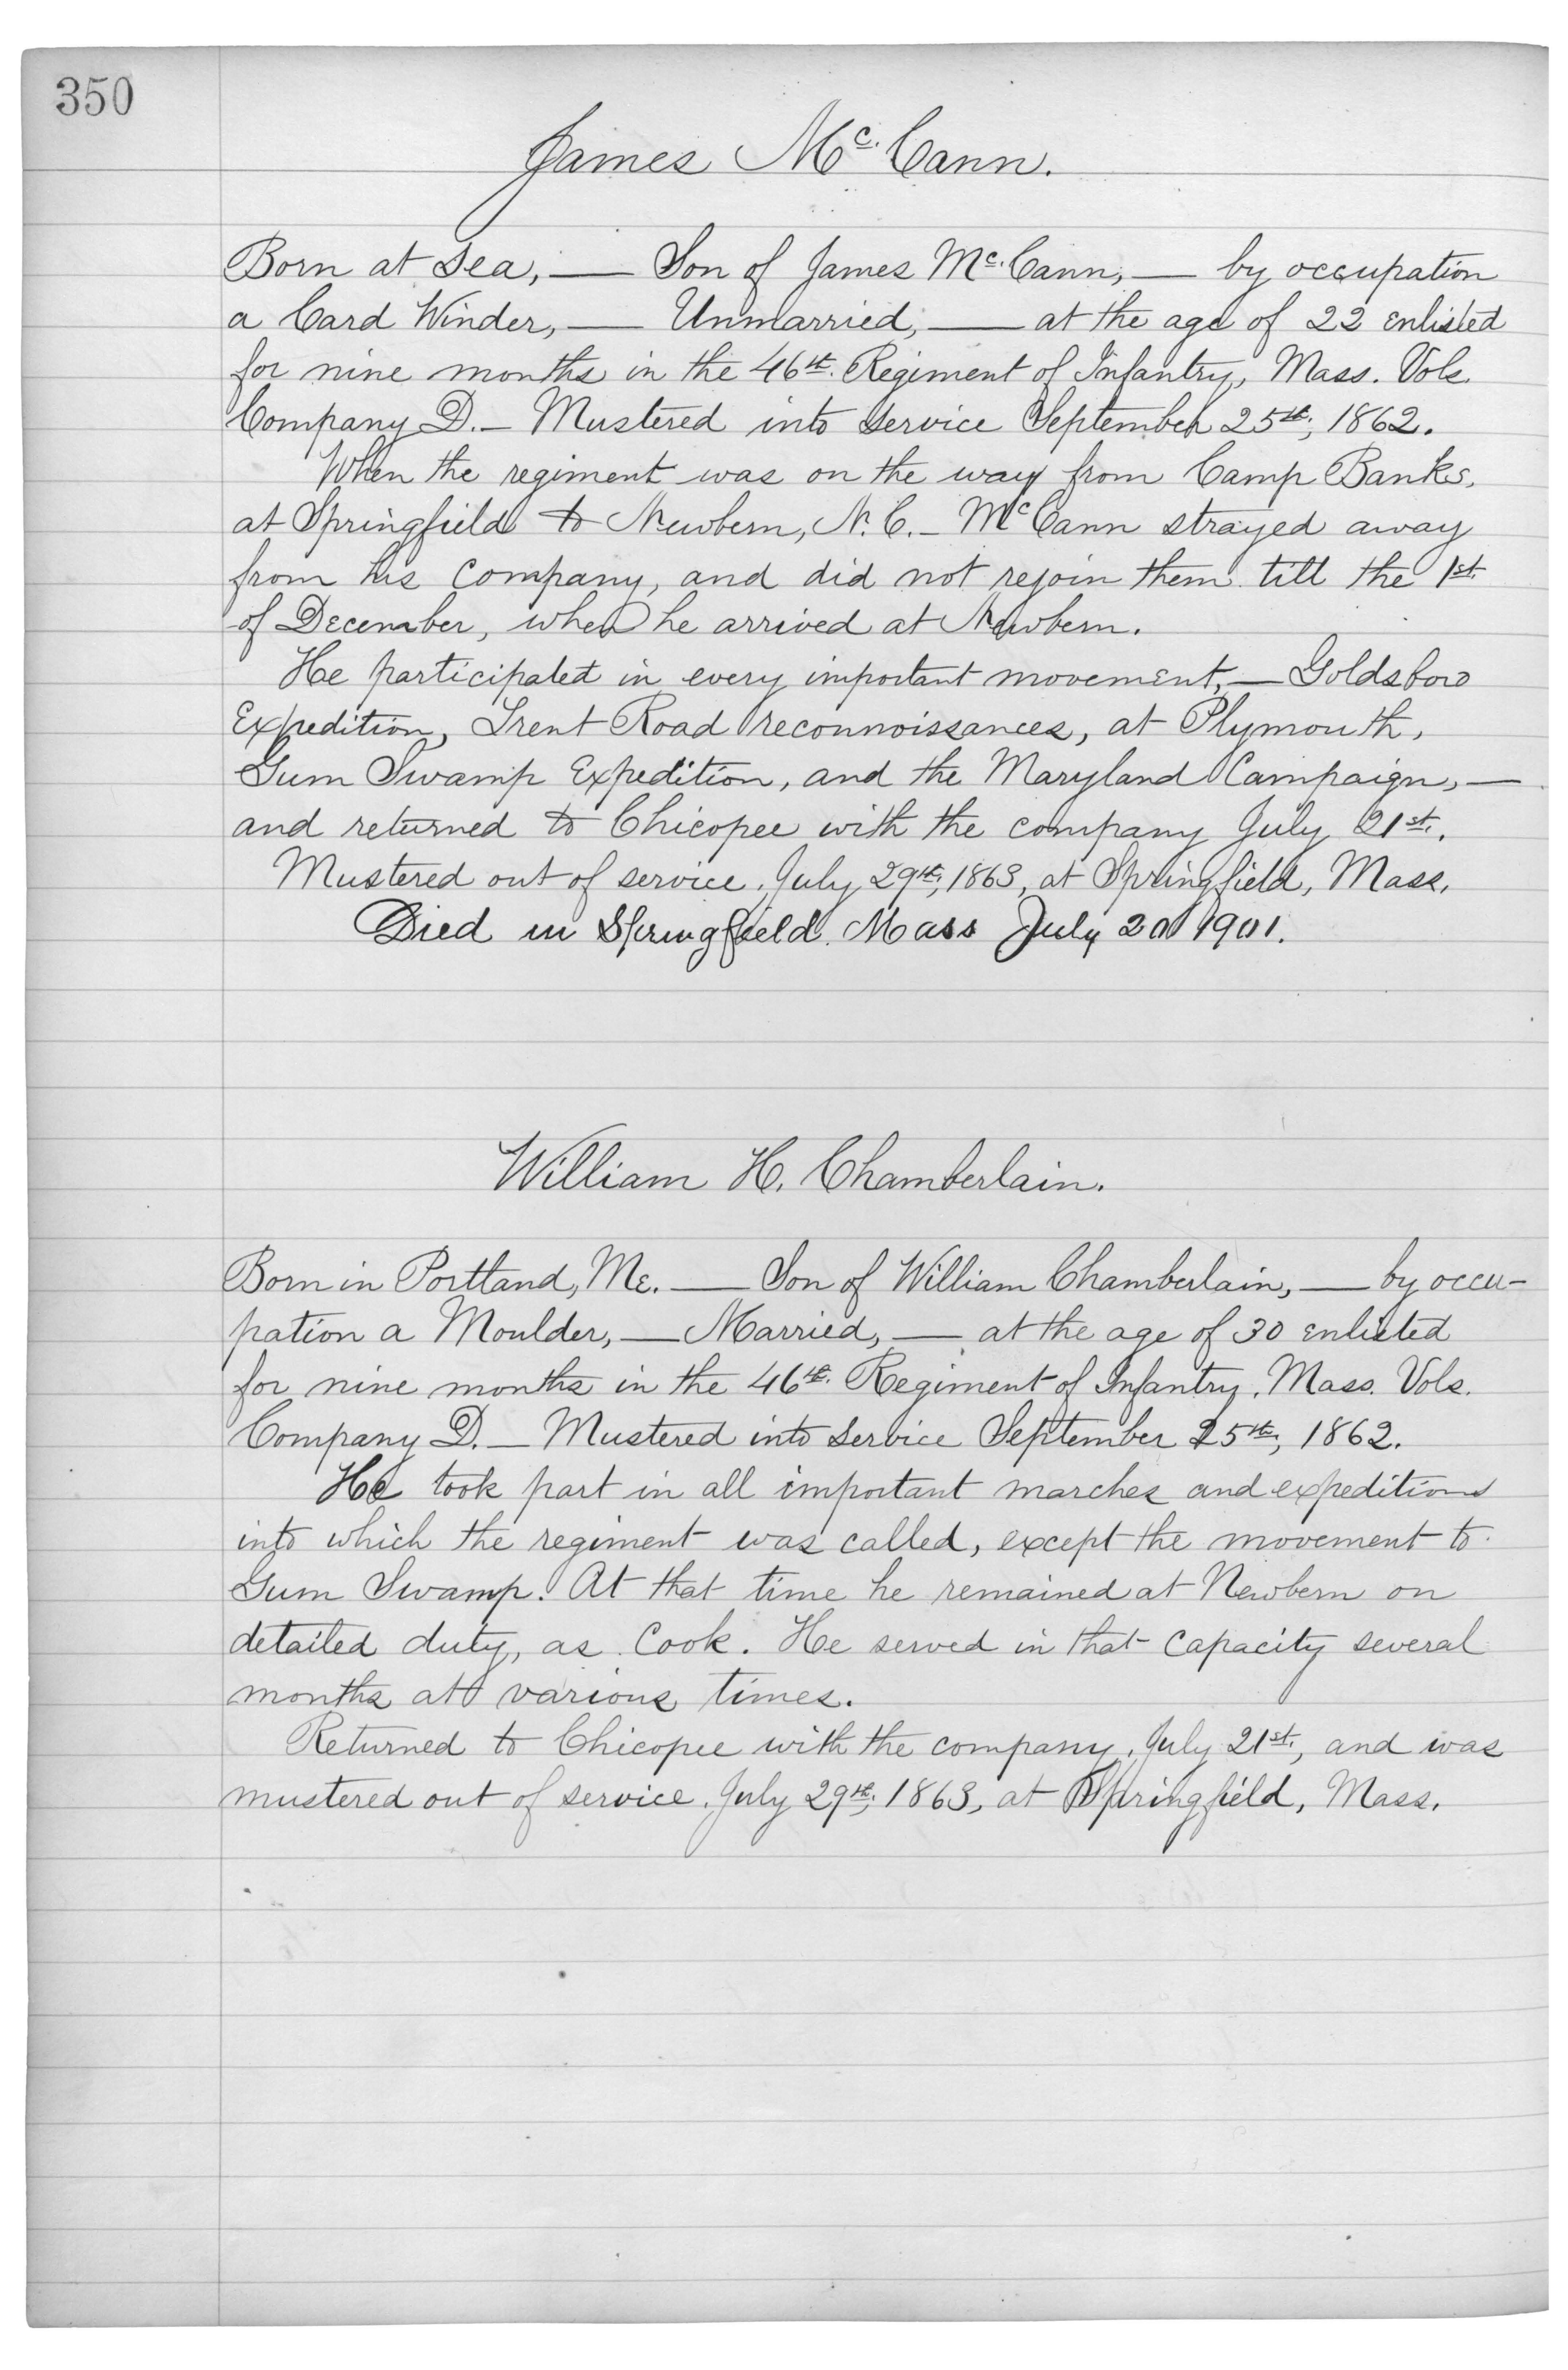 350
James McCann.
Born at Sea, — Son of James Mc.Cann, — by occupation
a Card Winder, — Unmarried, — at the age of 22 enlisted
for nine months in the 46th. Regiment of Infantry, Mass. Vols.
Company D. — Mustered into service September 25th, 1862.
When the regiment was on the way from Camp Banks,
at Springfield to Newbern, N.C. — McCann strayed away
from his company, and did not rejoin them till the 1st.
of December, when he arrived at Newbern.
He participated in every important movement, — Goldsboro
Expedition, Trent Road reconnoissances, at Plymouth,
Gum Swamp Expedition, and the Maryland Campaign, —
and returned to Chicopee with the company July 21st.
Mustered out of service, July 29th, 1863, at Springfield, Mass.
Died in Springfield. Mass July 20 1901.
William H. Chamberlain.
Born in Portland, Me. — Son of William Chamberlain, — by occu-
pation a Moulder, — Married, — at the age of 30 enlisted
for nine months in the 46th. Regiment of Infantry, Mass. Vols.
Company D. — Mustered into service September 25th, 1862.
He took part in all important marches and expeditions
into which the regiment was called, except the movement to
Gum Swamp. At that time he remained at Newbern on
detailed duty, as Cook. He served in that capacity several
months at various times.
Returned to Chicopee with the company, July 21st, and was
mustered out of service, July 29th, 1863, at Springfield, Mass.